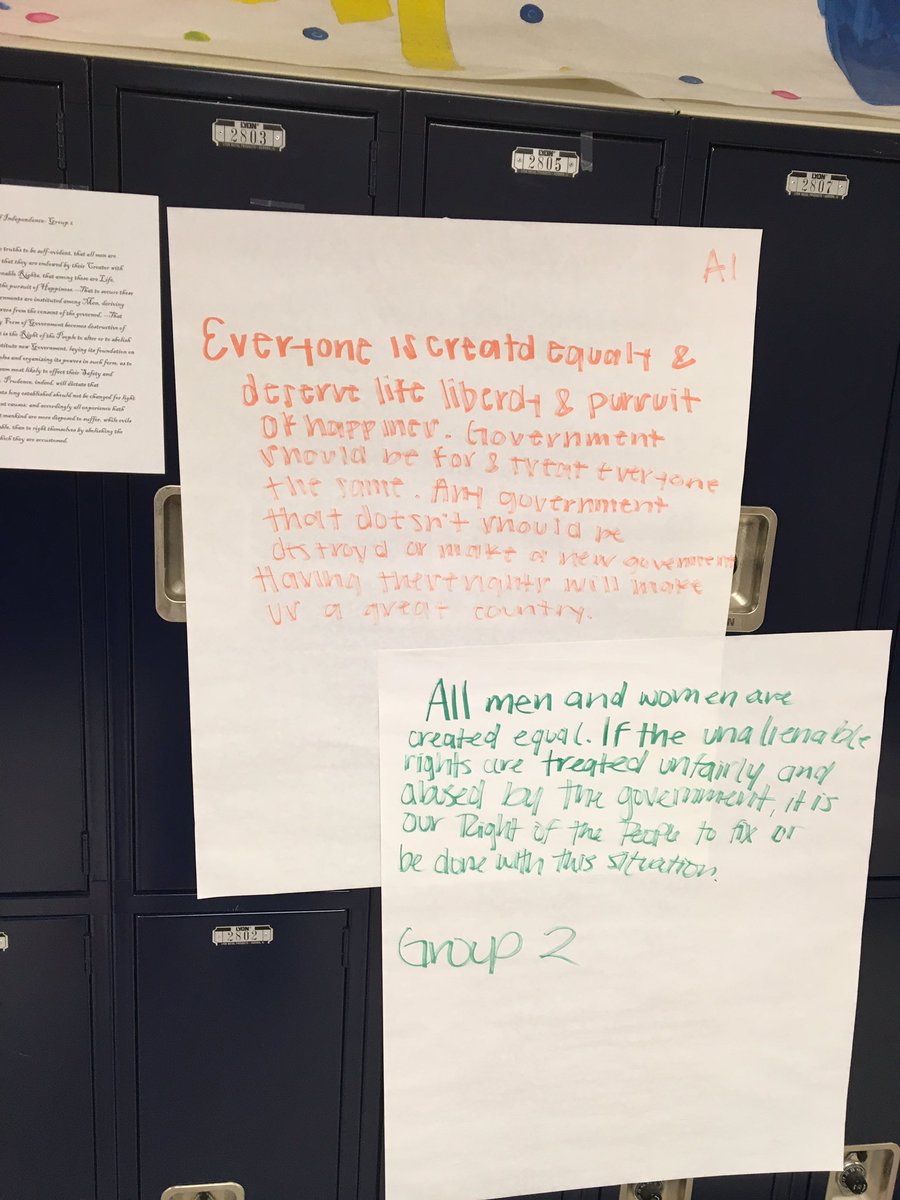 LYON
2803
LYON
2805
LYON
2807
Independence- Group 2
truths to be self-evident, that all men are
that they are endowed by their Creator with
Rights, that among these are Life,
the pursuit of Happiness.—That to secure these
are instituted among Men, deriving
from the consent of the governed, —That
Form of Government becomes destructive of
is the Right of the People to alter or to abolish
new Government, laying its foundation on
and organizing its powers in such form, as to
most likely to effect their Safety and
Prudence, indeed, will dictate that
long established should not be changed for light
causes; and accordingly all experience hath
mankind are more disposed to suffer, while evils
than to right themselves by abolishing the
which they are accustomed.
A1
Everyone is creatd equaly &
deserve life liberdy & pursuit
of happines. Government
should be for & treat everyone
the same. Any government
that doesn't should be
destroyd or make a new government
Having theserights will make
us a great country.
All men and women are
created equal. If the unalienable
rights are treated unfairly and
abused by the government, it is
our Right of the People to fix or
be done with this situation.
Group 2
LYON
2802